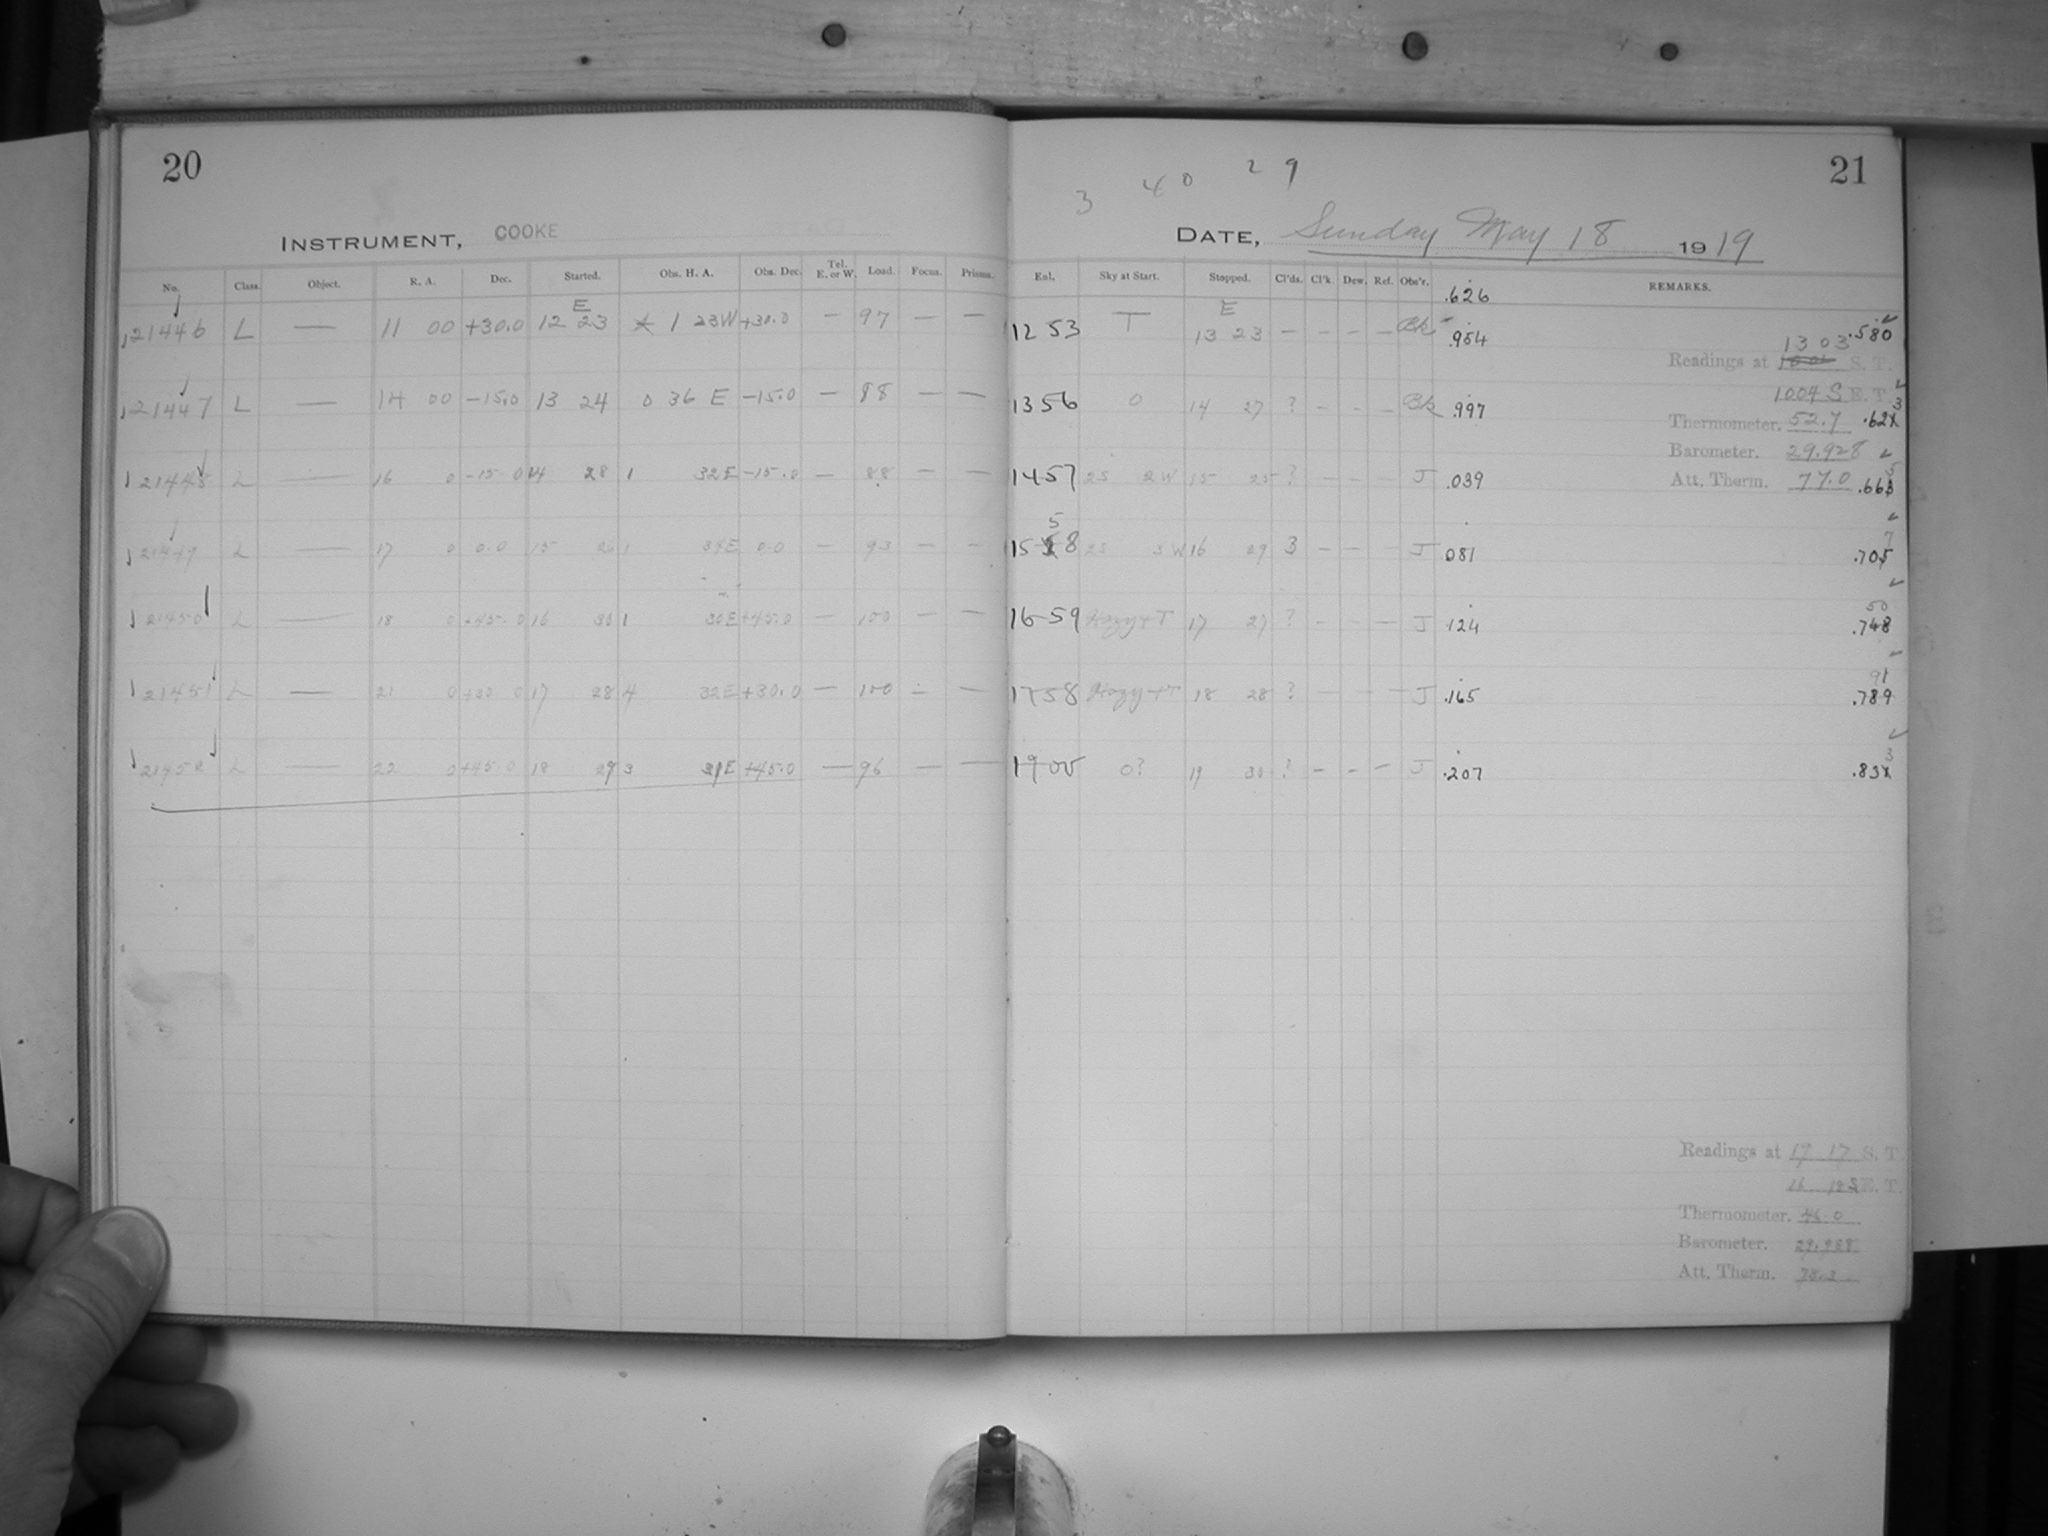 20
INSTRUMENT, COOKE
No. Class. Object. R. A. Dec. Started. Obs. H. A. Obs. Dec. Tel. E. or W. Load. Focus. Prisms.
E
21446 L — 11 00 +30.0 12 23 1 23W +30.0 — 97 — —
21447 L — 14 00 −15.0 13 24 0 36 E −15.0 — 88 — —
21448 L — 16 0 −15.0 14 28 1 32E −15.0 — 88 — —
21449 L — 17 0 0.0 15 1 0.0 — 93 — —
21450 L — 18 0 +45.0 16 30 1 30E +45.0 — 100 — —
21451 L — 21 0 +30.0 17 28 4 32E +30.0 — 100 — —
21452 L — 22 0 +45.0 18 29 3 31E +45.0 — 96 — —
3 40 29
21
DATE, Sunday May 18 1919
Enl. Sky at Start. Stopped. Cl'ds. Cl'k. Dew. Ref. Obs'r. .626 REMARKS.
E
12 53 T 13 23 — — — — Bk .954 .580
13 03
Readings at S. T.
1004 S E. T.
13 56 0 14 27 ? - - - Bk .997 3
Thermometer. 52.7 .62
Barometer. 29.928
14 57 25 2W 15 25 ? - - - J .039 5
Att. Therm. 77.0 .66
5
15 8 25 3W 16 29 3 - - - J .081 7
.70
16 59 Hazy+T 17 27 ? - - — J .124 50
.748
17 58 Hazy+T 18 28 ? - - - J .165 91
.789
19 00 0? 19 30 ? - - - J .207 3
.83
Readings at 19 17 S. T.
16 18 S E. T.
Thermometer. 46.0
Barometer. 29.988
Att. Therm.